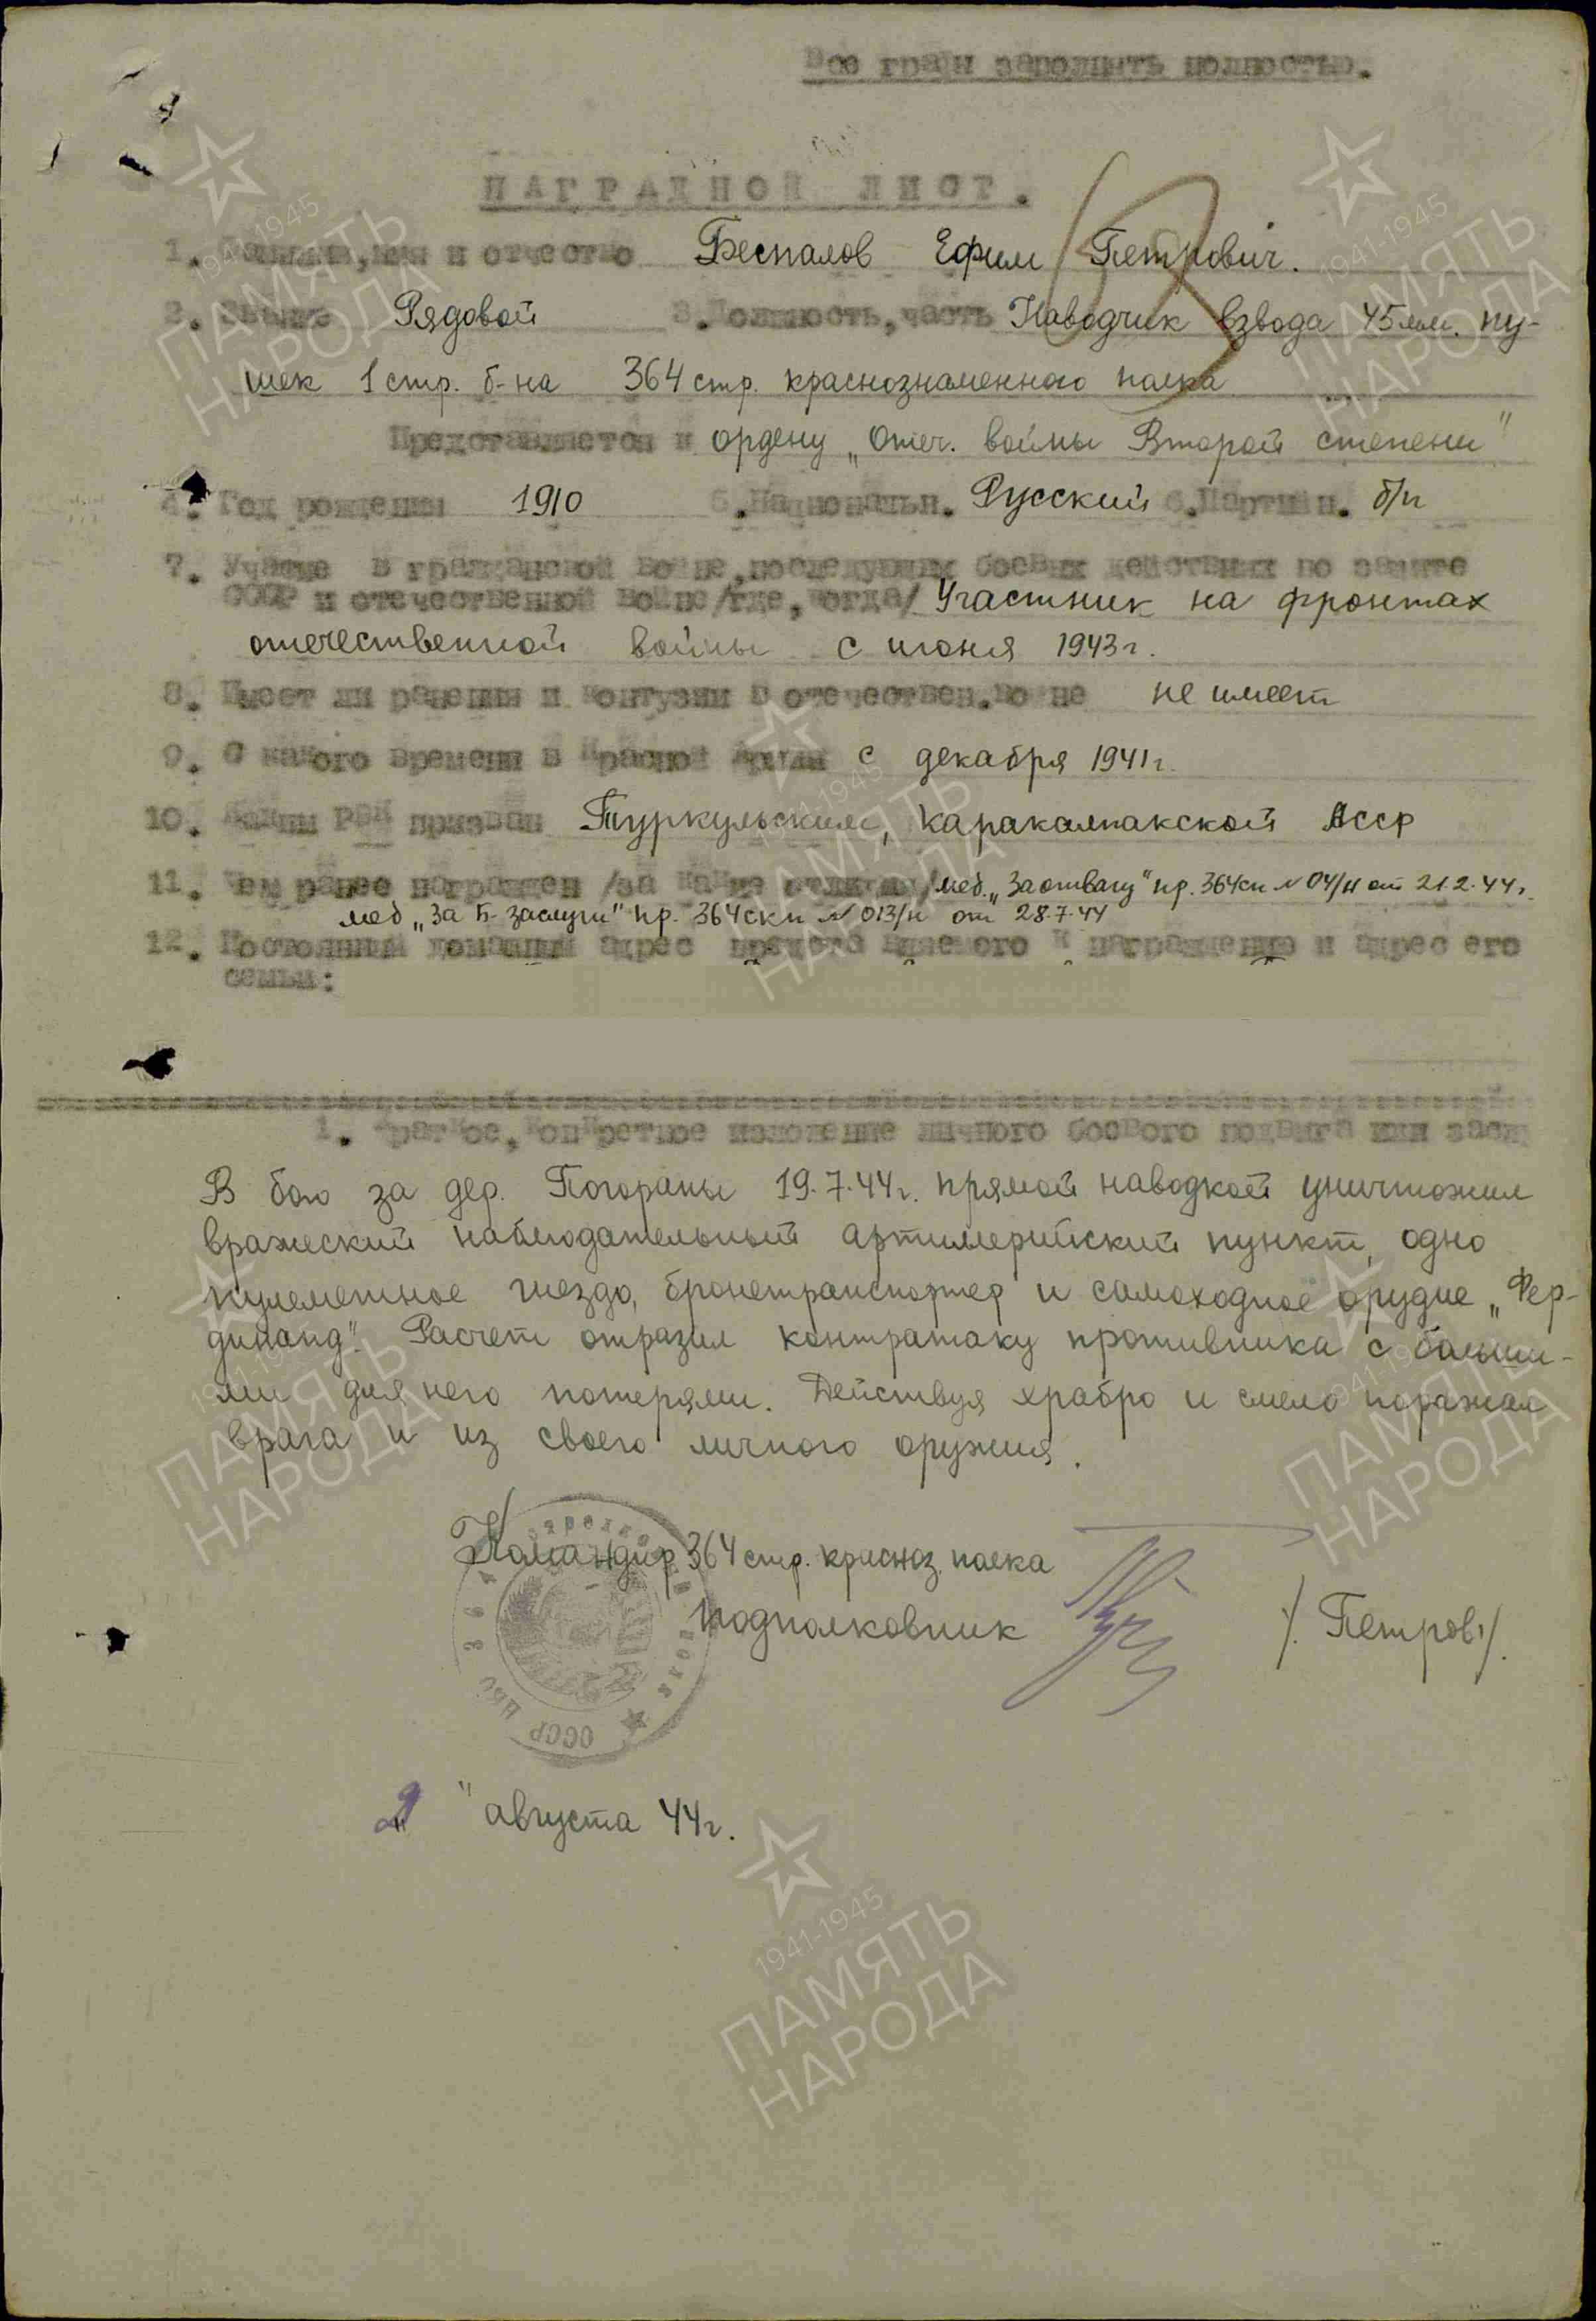 Все графы заполнить полностью.
НАГРАДНОЙ ЛИСТ.
1. Фамилия, имя и отчество Беспалов Ефим Петрович.
2. Звание Рядовой 3. Должность, часть Наводчик взвода 45 мм. пу-
шек 1 стр. б-на 364 стр. краснознаменного полка
Представляется к ордену „Отеч. войны Второй степени"
4. Год рождения 1910 5. Национальн. Русский 6. Партийн. б/п
7. Участие в гражданской войне, последующих боевых действиях по защите
СССР и отечественной войне /где, когда/ Участник на фронтах
отечественной войны с июня 1943 г.
8. Имеет ли ранения и контузии в отечествен. войне не имеет
9. С какого времени в Красной Армии с декабря 1941 г.
10. Каким РВК призван Туркульским, Каракалпакской АССР
11. Чем ранее награжден /за какие отличия/ мед. „За отвагу" пр. 364 сп № 04/н от 21.2.44 г.
мед „За б-заслуги" пр. 364 скп № 013/н от 28.7.44
12. Постоянный домашний адрес представляемого к награждению и адрес его
семьи:
1. Краткое, конкретное изложение личного боевого подвига или заслу
В бою за дер. Погораны 19.7.44 г. прямой наводкой уничтожил
вражеский наблюдательный артиллерийский пункт, одно
пулеметное гнездо, бронетранспортер и самоходное орудие „Фер-
динанд". Расчет отразил контратаку противника с больши-
ми для него потерями. Действуя храбро и смело поражал
врага и из своего личного оружия.
Командир 364 стр. красноз. полка
подполковник /. Петров./.
НКО СССР 364
2 " августа 44 г.
1941-1945
ПАМЯТЬ
НАРОДА
1941-1945
ПАМЯТЬ
НАРОДА
1941-1945
ПАМЯТЬ
НАРОДА
1941-1945
ПАМЯТЬ
НАРОДА
1941-1945
ПАМЯТЬ
НАРОДА
1941-1945
ПАМЯТЬ
НАРОДА